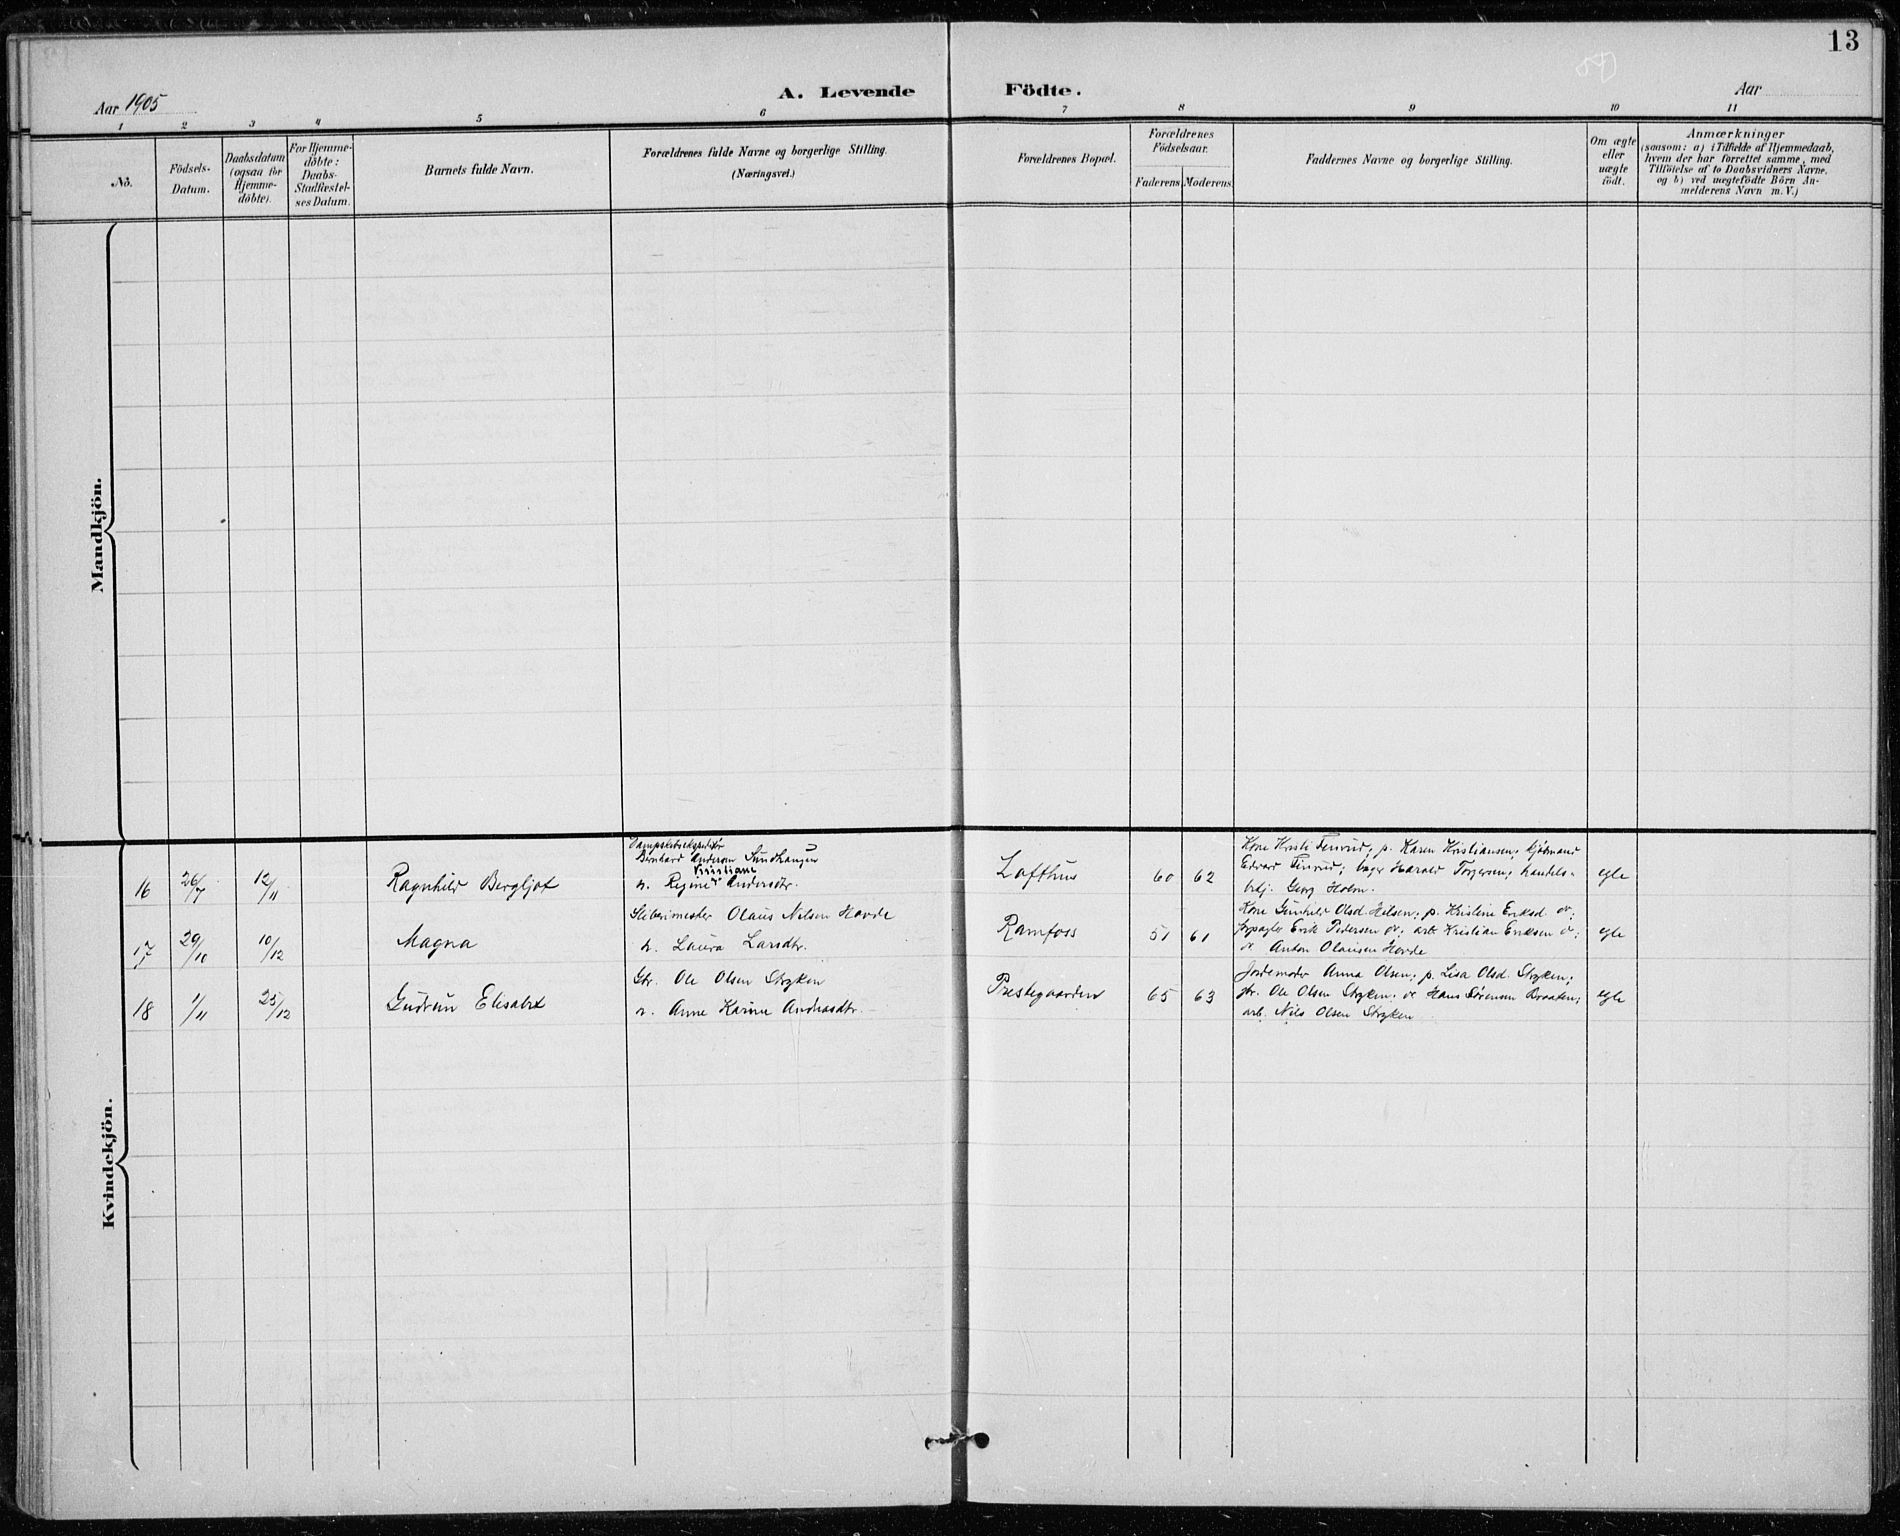 13
Aar 1905
A. Levende Födte.
Aar
1 2 3 4 5 6 7 8 9 10 11
No.
Födsels-
Datum.
Daabsdatum
(ogsaa for
Hjemme-
döbte).
For Hjemme-
döbte:
Daabs-
Stadfæstel-
ses Datum.
Barnets fulde Navn.
Forældrenes fulde Navne og borgerlige Stilling.
(Næringsvei.)
Forældrenes Bopæl.
Forældrenes
Födselsaar.
Faderens. Moderens.
Faddernes Navne og borgerlige Stilling.
Om ægte
eller
uægte
födt.
Anmærkninger
(saasom: a) i Tilfælde af Hjemmedaab,
hvem der har forrettet samme, med
Tilföielse af to Daabsvidners Navne,
og b) ved uægtefödte Börn An-
melderens Navn m. V.)
Mandkjön.
Kvindekjön.
16 26/7 12/11 Ragnhild Bergljot
Bernhard Andersen Sundhaugen
Kristiane
h. Regine Andersdtr.
Lofthus 60 62
Kone Kristi Finrud; p. Karen Kristiansen; kjöbmand
Edvard Finrud; bager Harald Torgersen; handels-
btj. Georg Holm.
egte
17 29/10 10/12 Magna
Sliberimester Olaus Nilsen Hovde
h. Laura Larsdtr.
Ramfoss 51 61
Kone Gunhild Olsd. Nilsen; p. Kristine Eriksd. ov;
Erik Pedersen ov; arb. Kristian Eriksen ov;
ov Anton Olausen Hovde
egte
18 1/11 25/12 Gudrun Elisabet
Gbr. Ole Olsen Stryken
h. Anne Karine Andreasdtr.
Prestegaarden 65 63
Jordemoder Anna Olsen; p. Lisa Olsd. Stryken;
gbr. Ole Olsen Stryken; ov Hans Sörensen Braaten;
arb. Nils Olsen Stryken
egte